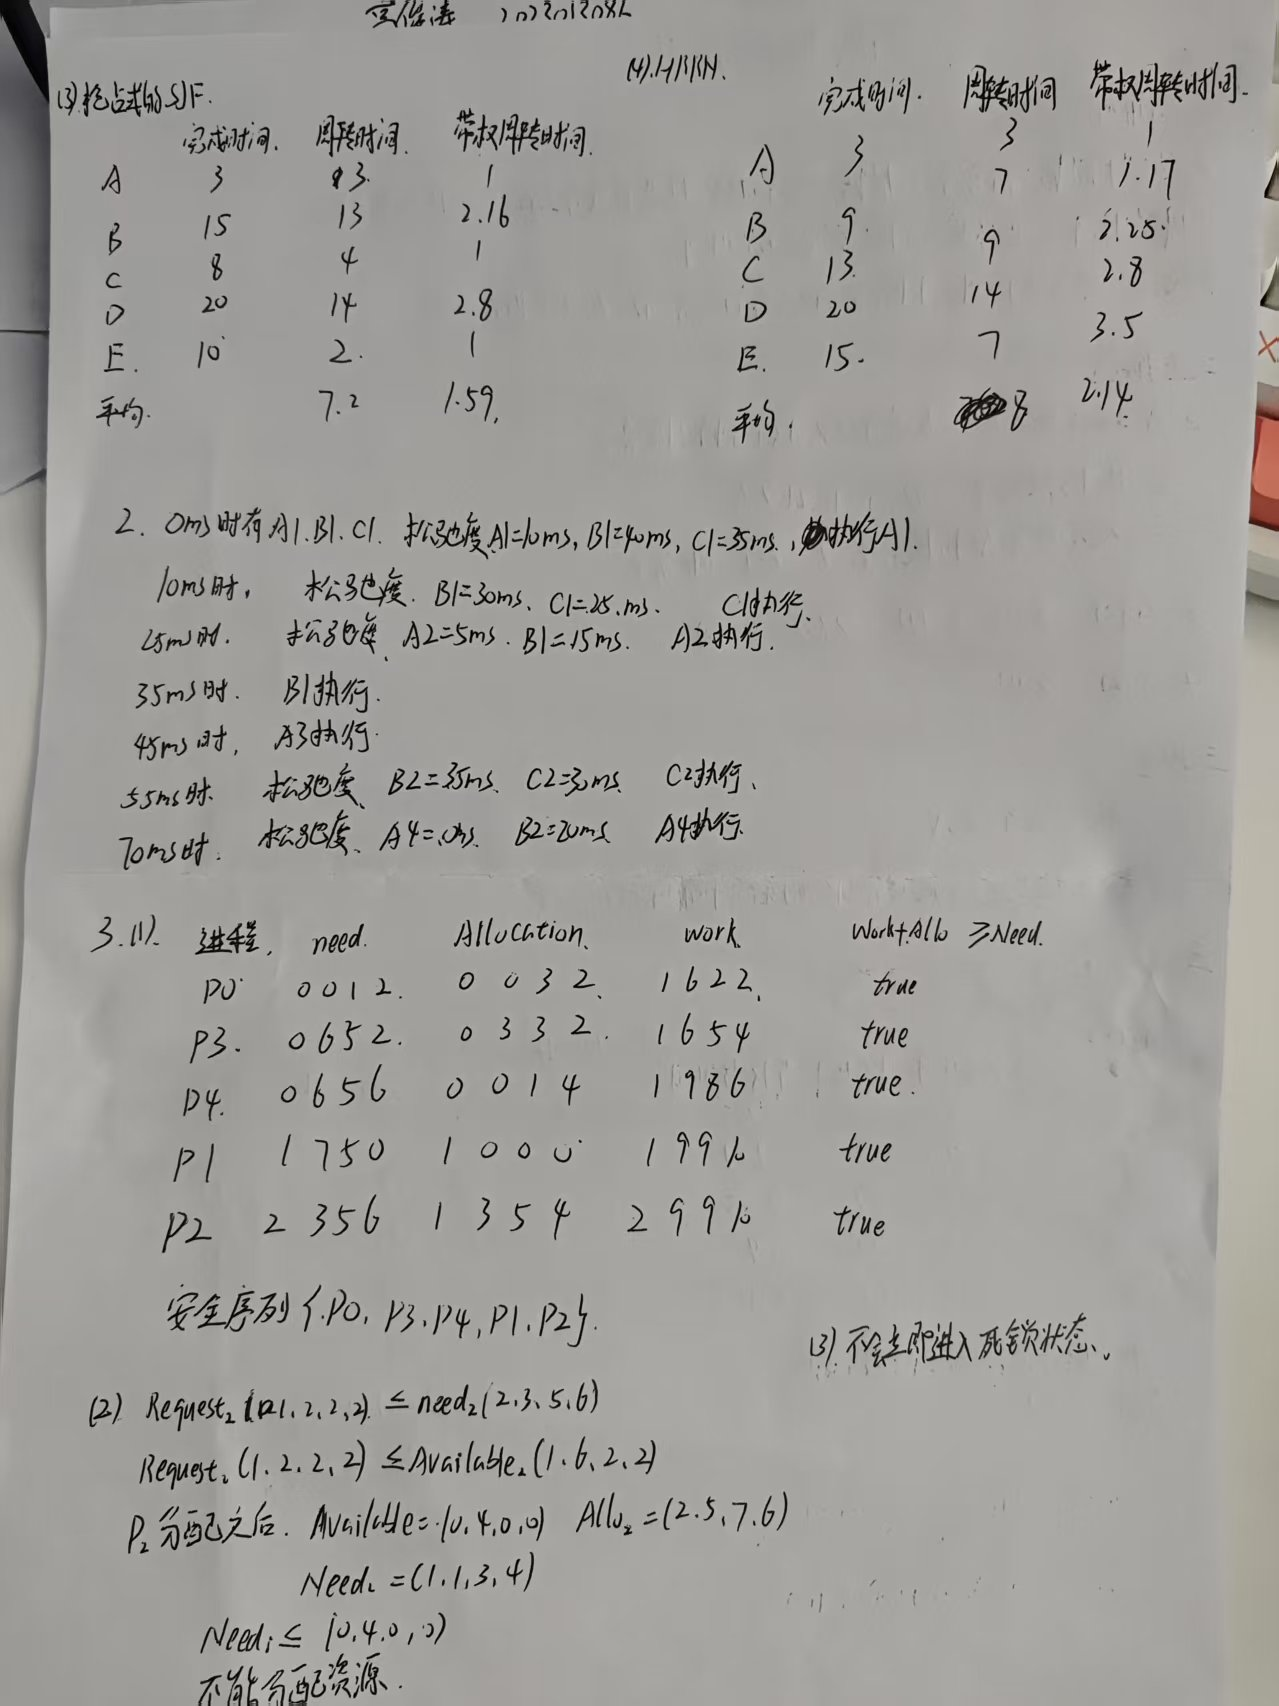 (3)抢占式的SJF.
完成时间. 周转时间. 带权周转时间.
A 3 3. 1
B 15 13 2.16
C 8 4 1
D 20 14 2.8
E. 10 2. 1
平均. 7.2 1.59.
(4).HRRN.
完成时间. 周转时间 带权周转时间.
A 3 3 1
B 9. 7 1.17
C 13. 9 2.25.
D 20 14 2.8
E. 15. 7 3.5
平均. 8 2.14
2. 0ms时有A1.B1.C1. 松弛度A1=10ms, B1=40ms, C1=35ms., 执行A1.
10ms时, 松弛度. B1=30ms、C1=25.ms. C1执行.
25ms时. 松弛度 A2=5ms. B1=15ms. A2执行.
35ms时. B1执行.
45ms时, A3执行.
55ms时. 松弛度、B2=35ms. C2=30ms. C2执行、
70ms时. 松弛度、A4=10ms. B2=20ms A4执行.
3.(1). 进程. need. Allocation. work. Work+Allo ≥Need.
P0 0 0 1 2. 0 0 3 2. 1 6 2 2. true
P3. 0 6 5 2. 0 3 3 2. 1 6 5 4 true
P4. 0 6 5 6 0 0 1 4 1 9 8 6 true.
P1 1 7 5 0 1 0 0 0 1 9 9 10 true
P2 2 3 5 6 1 3 5 4 2 9 9 10 true
安全序列{.P0, P3.P4,P1.P2}.
(3) 不会立即进入死锁状态.
(2) Request₂ (1.2,2,2). ≤ need₂(2.3.5,6)
Request₂(1.2.2,2) ≤Available₂(1.6,2,2)
P₂分配之后. Available=(0,4,0,0) Allo₂=(2.5,7.6)
Need₂ =(1.1,3,4)
Needᵢ≤ (0.4.0,0)
不能分配资源.